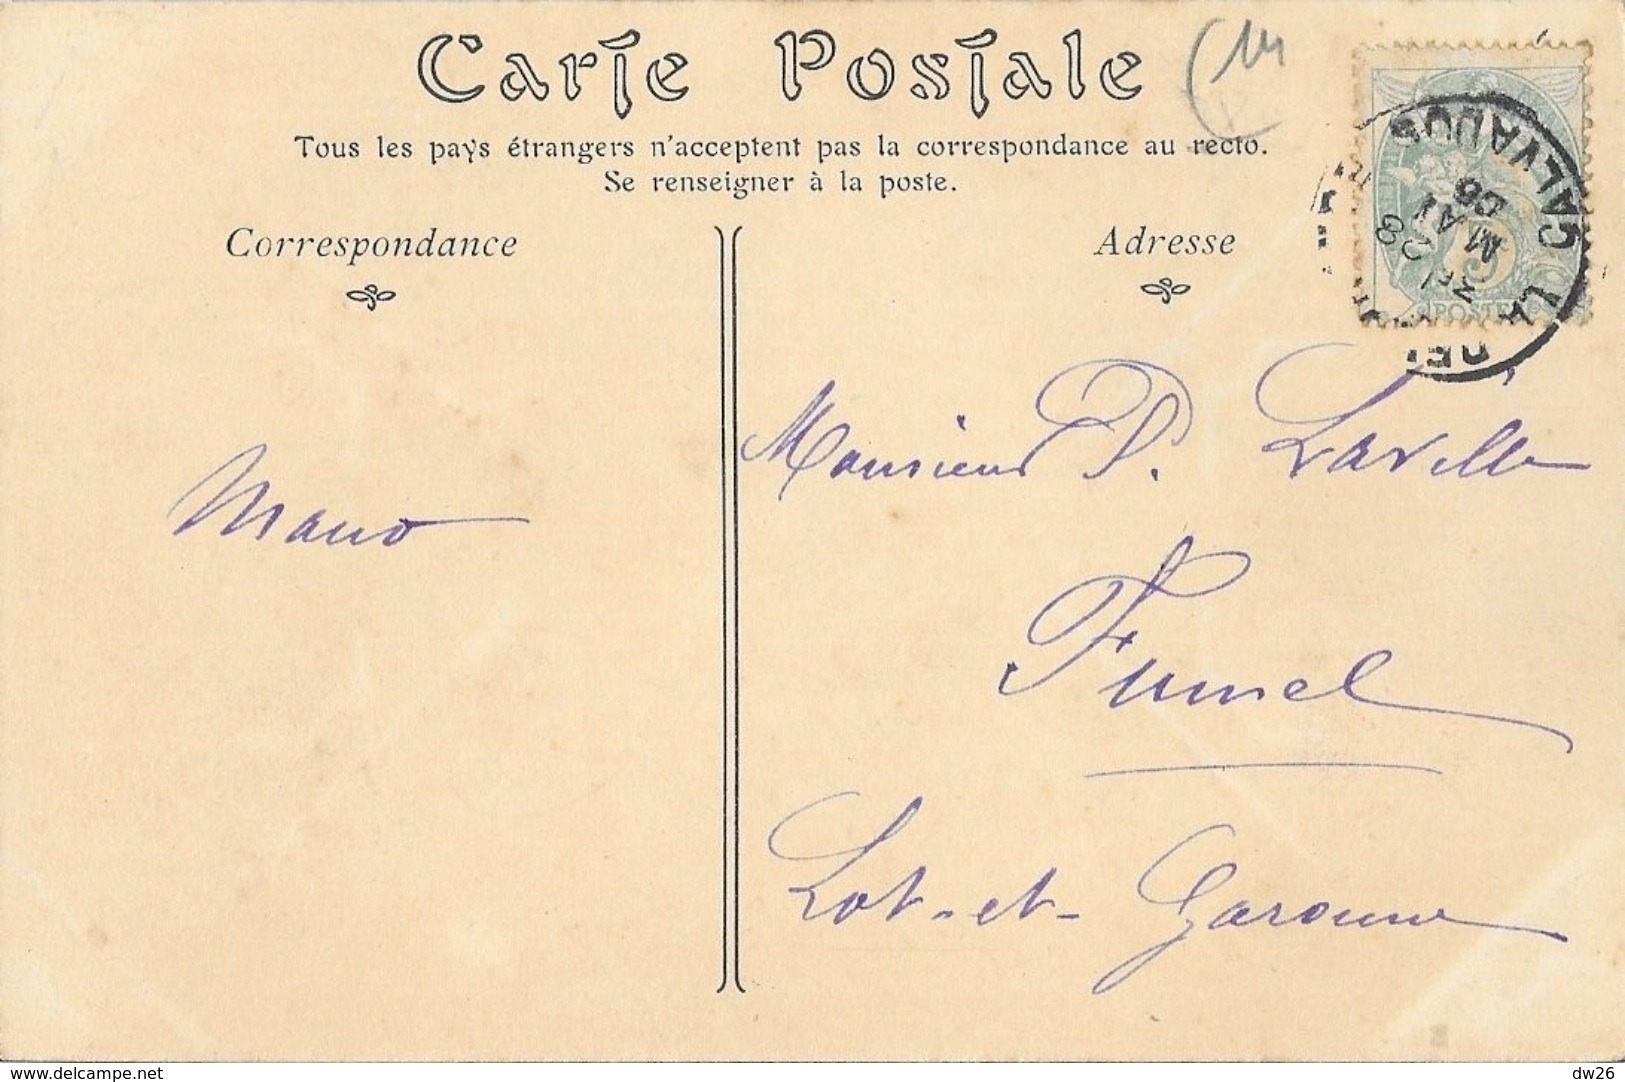 Carte Postale
Tous les pays étrangers n'acceptent pas la correspondance au recto.
Se renseigner à la poste.
Correspondance
Adresse
14
CALVADOS
28
MAI
06
LA DEL
POSTES
Monsieur P. Laville
Mano
Fumel
Lot-et-Garonne
www.delcampe.net
dw26